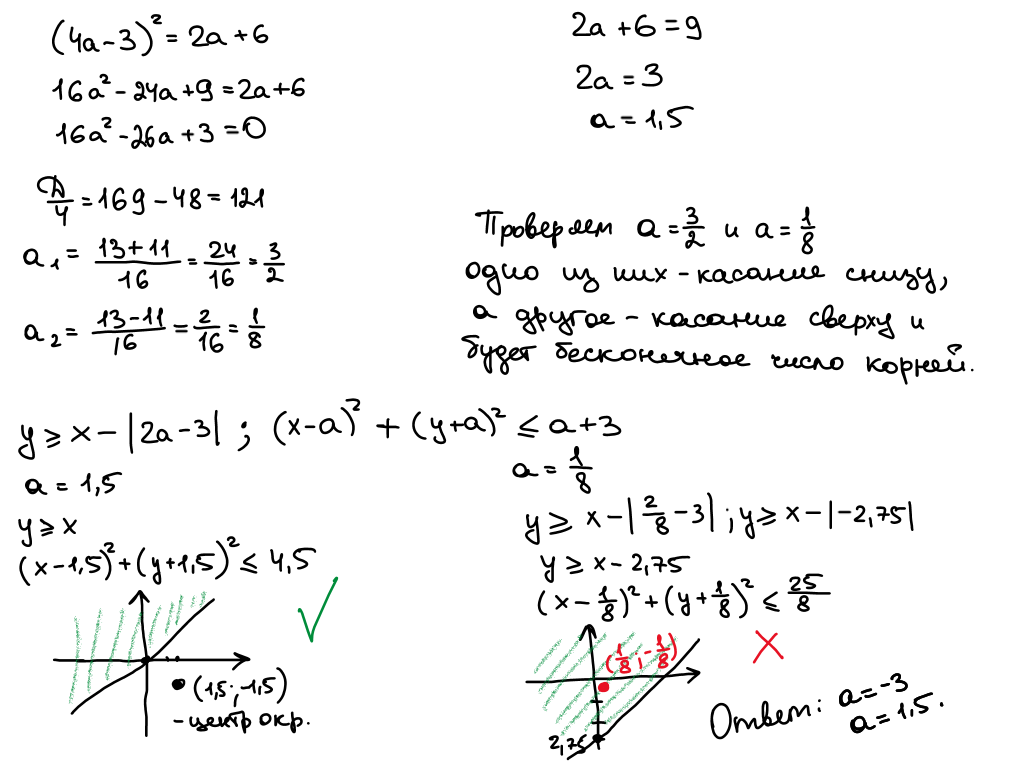 (4a-3)² = 2a+6
16a² - 24a + 9 = 2a+6
16a² - 26a + 3 = 0
2a + 6 = 9
2a = 3
a = 1,5
D/4 = 169 - 48 = 121
a₁ = (13+11)/16 = 24/16 = 3/2
a₂ = (13-11)/16 = 2/16 = 1/8
Проверяем a = 3/2 и a = 1/8
одно из них - касание снизу,
а другое - касание сверху и
будет бесконечное число корней.
y ≥ x - |2a-3| ; (x-a)² + (y+a)² ≤ a+3
a = 1,5
y ≥ x
(x-1,5)² + (y+1,5)² ≤ 4,5
(1,5; -1,5)
- центр окр.
a = 1/8
y ≥ x - |2/8 - 3| ; y ≥ x - |-2,75|
y ≥ x - 2,75
(x - 1/8)² + (y + 1/8)² ≤ 25/8
(1/8; -1/8)
2,75
Ответ: a = -3
a = 1,5.